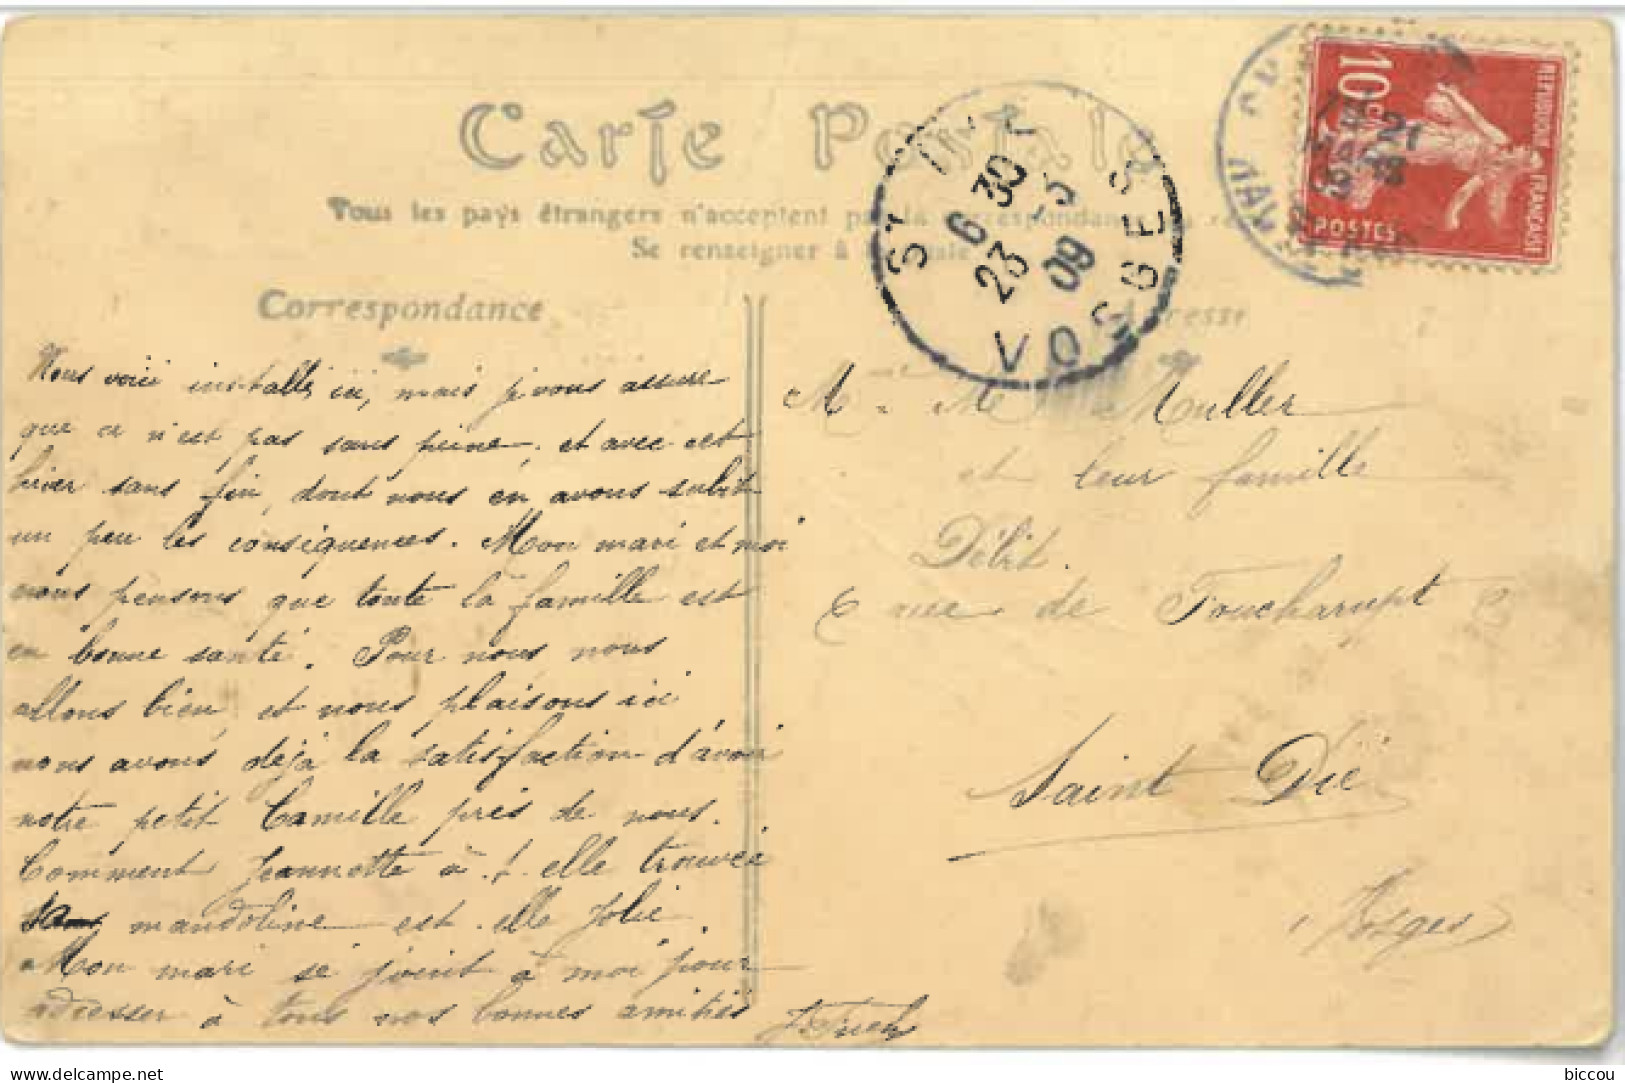 Carte Postale
Tous les pays étrangers n'acceptent pas la correspondance au re
Se renseigner à la
Correspondance
Adresse
10c
POSTES
REPUBLIQUE FRANCAISE
ST DIÉ
6 30
23 -3
09
VOSGES
21
Nous voici installés ici, mais je vous assure
que ce n'est pas sans peine, et avec cet
hiver sans fin, dont nous en avons subit
un peu les conséquences. Mon mari et moi
nous pensons que toute la famille est
en bonne santé. Pour nous nous
allons bien, et nous plaisons ici
nous avons déjà la satisfaction d'avoir
notre petit Camille près de nous.
Comment Jeannette a-t-elle trouvée
sa mandoline est-elle jolie
Mon mari se joint à moi pour
adresser à tous nos bonnes amitiés
M. Mme Muller
et leur famille
Débit.
6 rue de Foucharupt
Saint Dié
Vosges
biccou